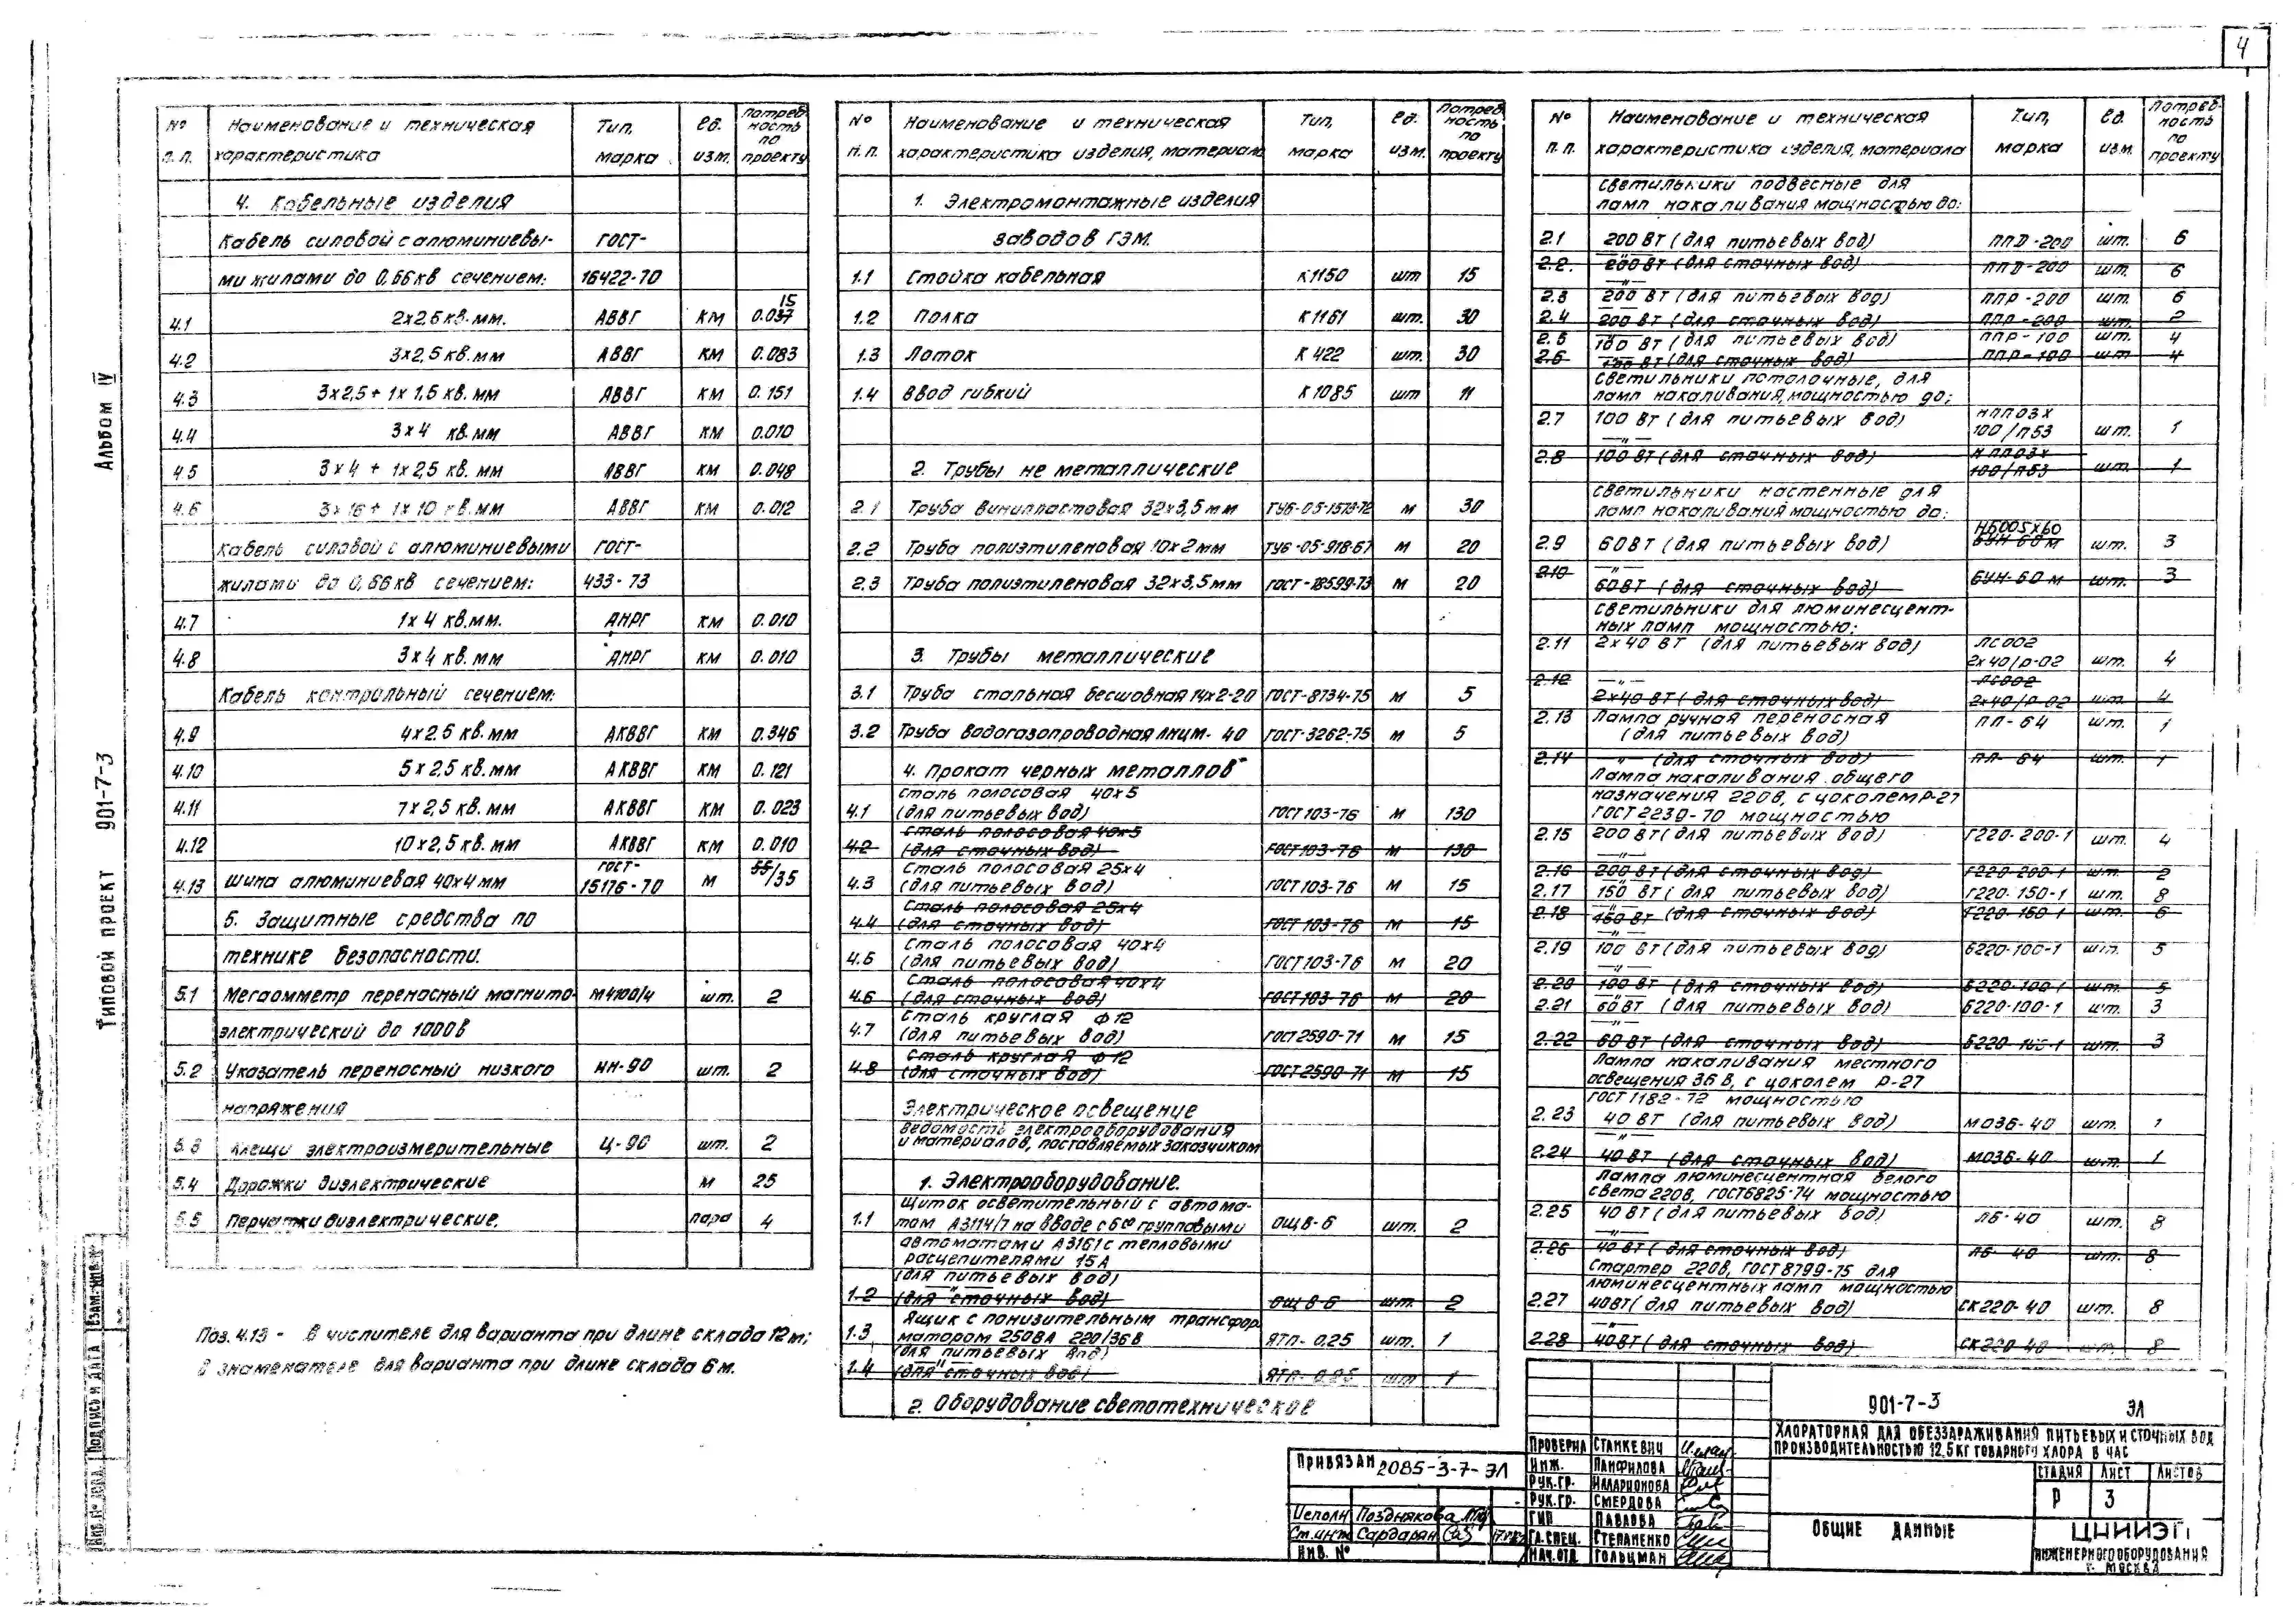 4
Альбом IV
Типовой проект 901-7-3
№ п.п. Наименование и техническая характеристика Тип, марка Ед. изм. Потребность по проекту
4. Кабельные изделия
Кабель силовой с алюминиевы- ГОСТ-
ми жилами до 0,66кв сечением: 16422-70
4.1 2х2.5 кв.мм. АВВГ КМ 0.037 15
4.2 3х2,5 кв.мм АВВГ КМ 0.083
4.3 3х2,5+1х1,5 кв.мм АВВГ КМ 0.151
4.4 3х4 кв.мм АВВГ КМ 0.010
4.5 3х4 + 1х2,5 кв.мм АВВГ КМ 0.048
4.6 3х16+ 1х10 кв.мм АВВГ КМ 0.012
Кабель силовой с алюминиевыми ГОСТ-
жилами до 0,66кв сечением: 433-73
4.7 1х4 кв.мм. АНРГ КМ 0.010
4.8 3х4 кв.мм АНРГ КМ 0.010
Кабель контрольный сечением:
4.9 4х2.5 кв.мм АКВВГ КМ 0.346
4.10 5х2,5 кв.мм АКВВГ КМ 0.121
4.11 7х2,5 кв.мм АКВВГ КМ 0.023
4.12 10х2,5 кв.мм АКВВГ КМ 0.010
4.13 Шина алюминиевая 40х4мм ГОСТ-15176-70 М 55/35
5. Защитные средства по
технике безопасности.
5.1 Мегаомметр переносный магнито- М4100/4 шт. 2
электрический до 1000в
5.2 Указатель переносный низкого НН-90 шт. 2
напряжения
5.3 Клещи электроизмерительные Ц-90 шт. 2
5.4 Дорожки диэлектрические М 25
5.5 Перчатки диэлектрические. пара 4
Поз. 4.13 - в числителе для варианта при длине склада 12м;
в знаменателе для варианта при длине склада 6м.
№ п.п. Наименование и техническая характеристика изделия, материала Тип, марка Ед. изм. Потребность по проекту
1. Электромонтажные изделия
заводов ГЭМ.
1.1 Стойка кабельная К1150 шт 15
1.2 Полка К1161 шт. 30
1.3 Лоток К422 шт. 30
1.4 Ввод гибкий К1085 шт 11
2. Трубы не металлические
2.1 Труба винипластовая 32х3,5мм ТУ6-05-1573-72 М 30
2.2 Труба полиэтиленовая 10х2мм ТУ6-05-918-67 М 20
2.3 Труба полиэтиленовая 32х3,5мм ГОСТ-18599-73 М 20
3. Трубы металлические
3.1 Труба стальная бесшовная 14х2-20 ГОСТ-8734-75 М 5
3.2 Труба водогазопроводная 40 ГОСТ-3262-75 М 5
4. Прокат черных металлов
4.1 Сталь полосовая 40х5 (для питьевых вод) ГОСТ103-76 М 130
4.2 Сталь полосовая 40х5 (для сточных вод) ГОСТ103-76 М 130
4.3 Сталь полосовая 25х4 (для питьевых вод) ГОСТ103-76 М 15
4.4 Сталь полосовая 25х4 (для сточных вод) ГОСТ103-76 М 15
4.5 Сталь полосовая 40х4 (для питьевых вод) ГОСТ103-76 М 20
4.6 Сталь полосовая 40х4 (для сточных вод) ГОСТ103-76 М 20
4.7 Сталь круглая Ф12 (для питьевых вод) ГОСТ2590-71 М 15
4.8 Сталь круглая Ф12 (для сточных вод) ГОСТ2590-71 М 15
Электрическое освещение
Ведомость электрооборудования
и материалов, поставляемых заказчиком
1. Электрооборудование.
1.1 Щиток осветительный с автома-
том А3114/7 на вводе с 6ю групповыми ОЩВ-6 шт. 2
автоматами А3161 с тепловыми
расцепителями 15А
(для питьевых вод)
1.2 (для сточных вод) ОЩВ-6 шт. 2
1.3 Ящик с понизительным трансфор-
матором 250ВА 220/36В ЯТП-0.25 шт. 1
(для питьевых вод)
1.4 (для сточных вод) ЯТП-0.25 шт 1
2. Оборудование светотехническое
№ п.п. Наименование и техническая характеристика изделия, материала Тип, марка Ед. изм. Потребность по проекту
Светильники подвесные для
ламп накаливания мощностью до:
2.1 200 Вт (для питьевых вод) ППД-200 шт. 6
2.2. 200 Вт (для сточных вод) ППД-200 шт. 6
2.3 200 Вт (для питьевых вод) ППР-200 шт. 6
2.4 200 Вт (для сточных вод) ППР-200 шт. 2
2.5 100 Вт (для питьевых вод) ППР-100 шт. 4
2.6 100 Вт (для сточных вод) ППР-100 шт 4
Светильники потолочные, для
ламп накаливания, мощностью до:
2.7 100 Вт (для питьевых вод) НПП03х100/П53 шт. 1
2.8 100 Вт (для сточных вод) НПП03х100/П53 шт. 1
Светильники настенные для
ламп накаливания мощностью до:
2.9 60Вт (для питьевых вод) НБ005х60 БУН-60М шт. 3
2.10 60Вт (для сточных вод) БУН-60М шт. 3
Светильники для люминесцент-
ных ламп мощностью:
2.11 2х40 Вт (для питьевых вод) ЛС002 2х40/Р-02 шт. 4
2.12 2х40 Вт (для сточных вод) ЛС002 2х40/Р-02 шт 4
2.13 Лампа ручная переносная ПЛ-64 шт. 1
(для питьевых вод)
2.14 -"- (для сточных вод) ПЛ-64 шт. 1
Лампа накаливания общего
назначения 220в, с цоколем Р-27
ГОСТ 2239-70 мощностью
2.15 200 Вт (для питьевых вод) Г220-200-1 шт. 4
2.16 200 Вт (для сточных вод) Г220-200-1 шт. 2
2.17 150 Вт (для питьевых вод) Г220-150-1 шт. 8
2.18 150 Вт (для сточных вод) Г220-150-1 шт. 6
2.19 100 Вт (для питьевых вод) Б220-100-1 шт. 5
2.20 100 Вт (для сточных вод) Б220-100-1 шт. 5
2.21 60 Вт (для питьевых вод) Б220-100-1 шт. 3
2.22 60 Вт (для сточных вод) Б220-100-1 шт. 3
Лампа накаливания местного
освещения 36 В, с цоколем Р-27
ГОСТ 1182-72 мощностью
2.23 40 Вт (для питьевых вод) МО36-40 шт. 1
2.24 40 Вт (для сточных вод) МО36-40 шт. 1
Лампа люминесцентная белого
света 220В, ГОСТ6825-74 мощностью
2.25 40 Вт (для питьевых вод) ЛБ-40 шт. 8
2.26 40 Вт (для сточных вод) ЛБ-40 шт. 8
Стартер 220в, ГОСТ 8799-75 для
люминесцентных ламп мощностью
2.27 40Вт (для питьевых вод) СК220-40 шт. 8
2.28 40Вт (для сточных вод) СК220-40 шт 8
901-7-3 ЭЛ
Хлораторная для обеззараживания питьевых и сточных вод
производительностью 12,5кг товарного хлора в час
Стадия Лист Листов
Р 3
Общие данные
ЦНИИЭП
инженерного оборудования
г. Москва
Проверил Станкевич
Инж. Панфилова
Рук.гр. Илларионова
Рук.гр. Смердова
ГИП Павлова
Гл.спец. Степаненко
Нач.отд Гольцман
Привязан 2085-3-7-ЭЛ
Исполн Позднякова
Ст.инж Сардарян
Инв. №
Инв.№ подл. Подпись и дата Взам. инв.№